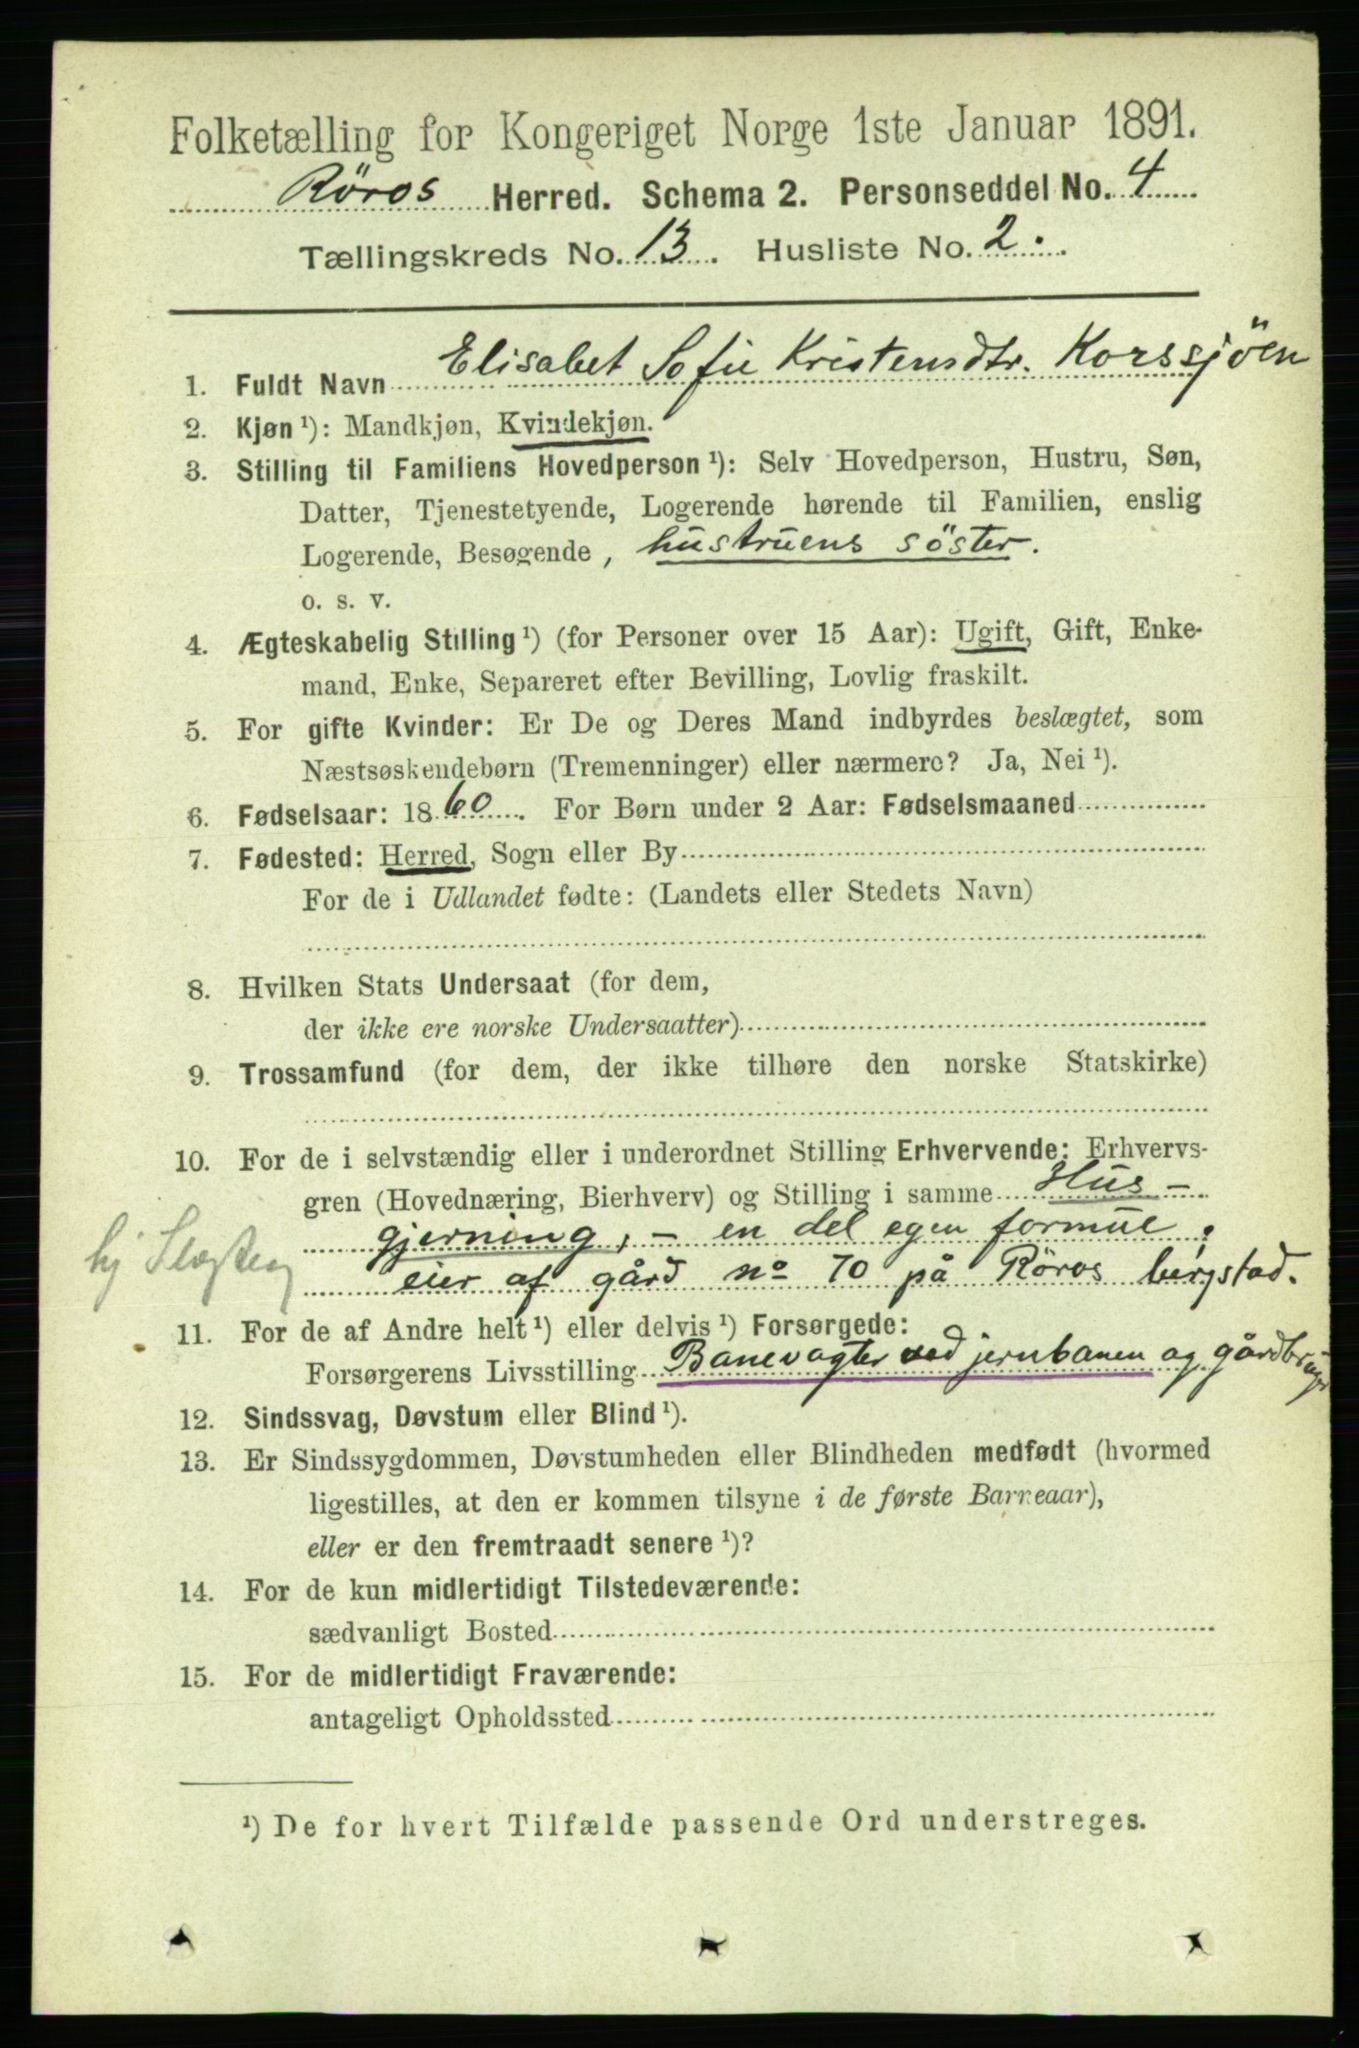 Folketælling for Kongeriget Norge 1ste Januar 1891.
Röros Herred. Schema 2. Personseddel No. 4
Tællingskreds No. 13. Husliste No. 2.
1. Fuldt Navn Elisabet Sofie Kristensdtr. Korssjöen
2. Kjøn ¹): Mandkjøn, Kvindekjøn.
3. Stilling til Familiens Hovedperson ¹): Selv Hovedperson, Hustru, Søn,
Datter, Tjenestetyende, Logerende hørende til Familien, enslig
Logerende, Besøgende, hustruens söster.
o. s. v.
4. Ægteskabelig Stilling ¹) (for Personer over 15 Aar): Ugift, Gift, Enke-
mand, Enke, Separeret efter Bevilling, Lovlig fraskilt.
5. For gifte Kvinder: Er De og Deres Mand indbyrdes beslægtet, som
Næstsøskendebørn (Tremenninger) eller nærmere? Ja, Nei ¹).
6. Fødselsaar: 1860. For Børn under 2 Aar: Fødselsmaaned
7. Fødested: Herred, Sogn eller By
For de i Udlandet fødte: (Landets eller Stedets Navn)
8. Hvilken Stats Undersaat (for dem,
der ikke ere norske Undersaatter)
9. Trossamfund (for dem, der ikke tilhøre den norske Statskirke)
10. For de i selvstændig eller i underordnet Stilling Erhvervende: Erhvervs-
gren (Hovednæring, Bierhverv) og Stilling i samme Hus-
gjerning, - en del egen formue;
hj Slægten eier af gård no 70 på Röros bergstad.
11. For de af Andre helt ¹) eller delvis ¹) Forsørgede:
Forsørgerens Livsstilling Banevogter ved jernbanen og gårdbruger
12. Sindssvag, Døvstum eller Blind ¹).
13. Er Sindssygdommen, Døvstumheden eller Blindheden medfødt (hvormed
ligestilles, at den er kommen tilsyne i de første Barneaar),
eller er den fremtraadt senere ¹)?
14. For de kun midlertidigt Tilstedeværende:
sædvanligt Bosted
15. For de midlertidigt Fraværende:
antageligt Opholdssted
¹) De for hvert Tilfælde passende Ord understreges.